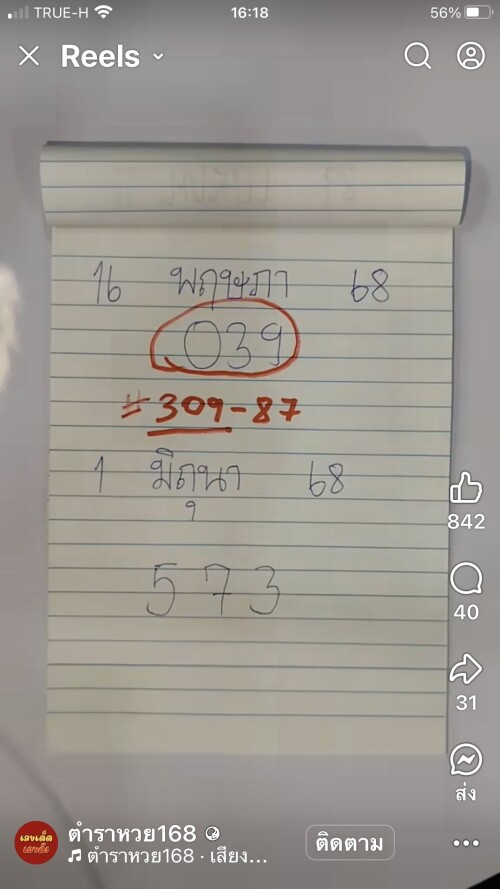 TRUE-H 16:18 56%
Reels
16 พฤษภา 68
039
#309-87
1 มิถุนา 68
573
842
40
31
ส่ง
เลขเด็ด
ตำราหวย168
ติดตาม
ตำราหวย168 · เสียง...